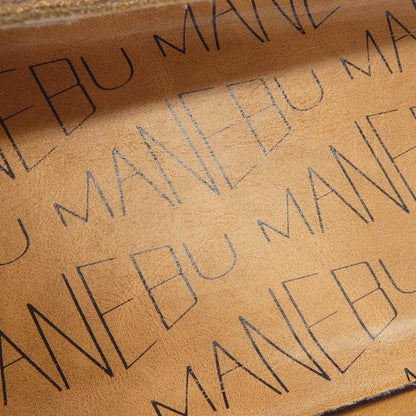 MANEBU
MANEBU
MANEBU
MANEBU
MANEBU
MANEBU
MANEBU